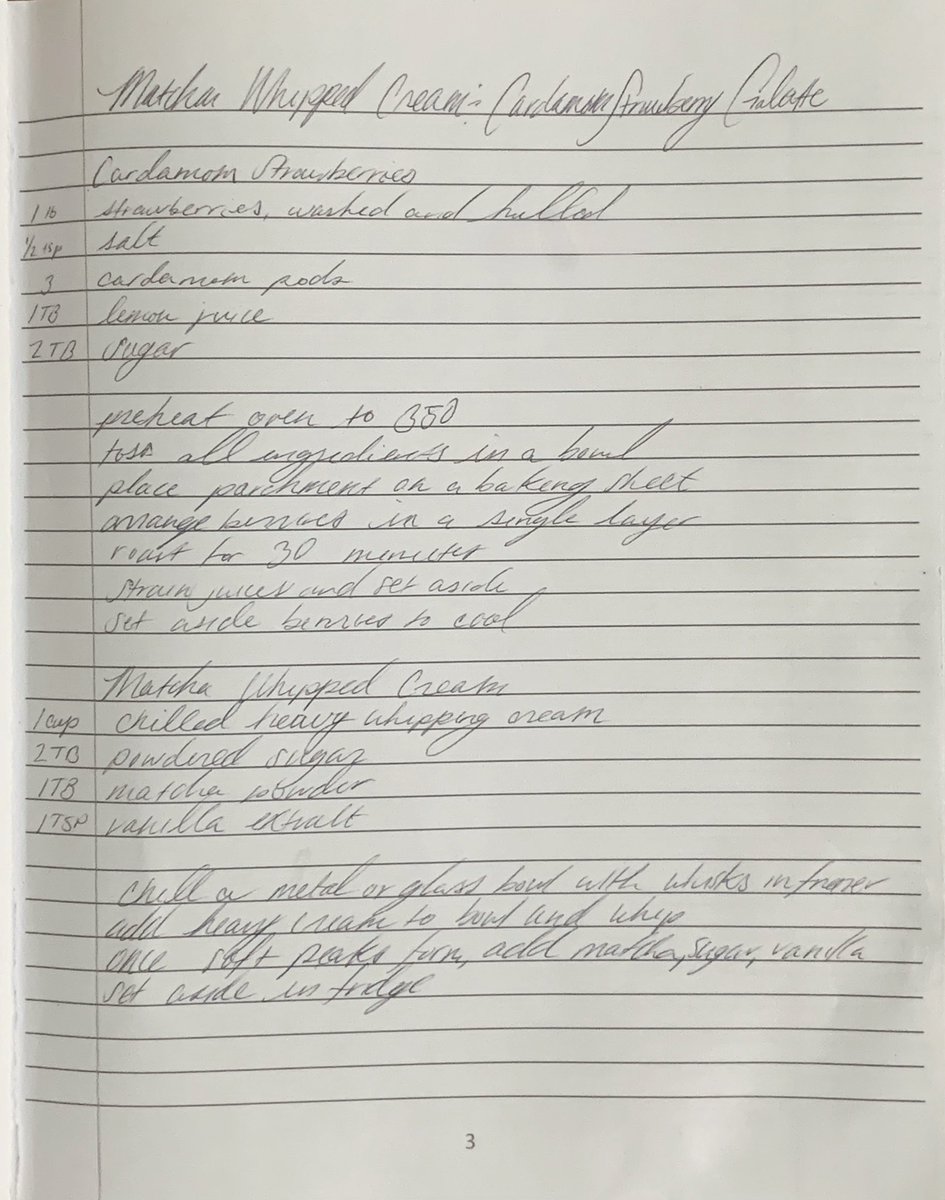 Matcha Whipped Cream - Cardamom Strawberry Galette
Cardamom Strawberries
1 lb strawberries, washed and hulled
1/2 tsp salt
3 cardamom pods
1TB lemon juice
2TB sugar
preheat oven to 350
toss all ingredients in a bowl
place parchment on a baking sheet
arrange berries in a single layer
roast for 30 minutes
strain juices and set aside
set aside berries to cool
Matcha Whipped Cream
1 cup chilled heavy whipping cream
2TB powdered sugar
1TB matcha powder
1TSP vanilla extract
chill a metal or glass bowl with whisks in freezer
add heavy cream to bowl and whip
once soft peaks form, add matcha, sugar, vanilla
set aside in fridge
3